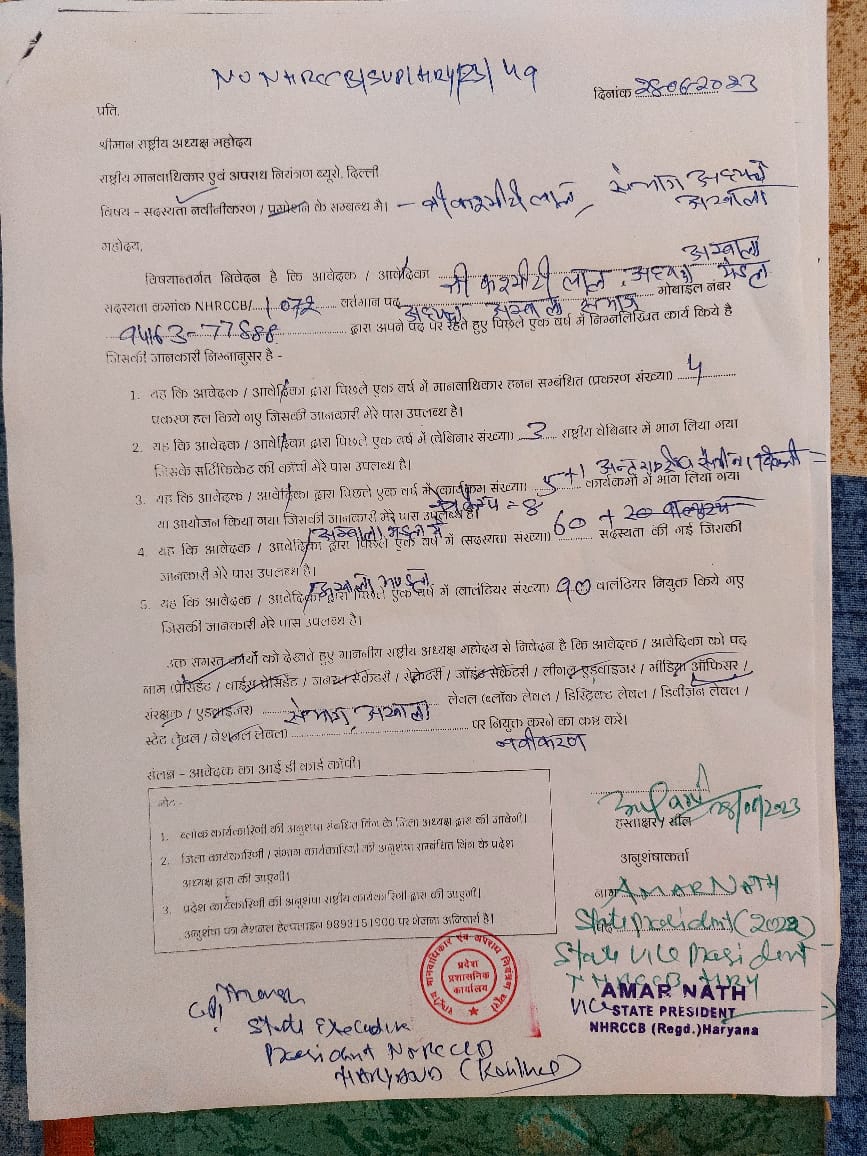 NO NHRCCB/SUP/HRY/23/49
दिनांक 28062023
प्रति,
श्रीमान राष्ट्रीय अध्यक्ष महोदय
राष्ट्रीय मानवाधिकार एवं अपराध नियंत्रण ब्यूरो, दिल्ली
विषय - सदस्यता नवीनीकरण / प्रमोशन के सम्बन्ध मे। - श्री कश्मीरी लाल, संभाग अध्यक्ष
अम्बाला
महोदय,
अम्बाला
विषयान्तर्गत निवेदन है कि आवेदक / आवेदिका श्री कश्मीरी लाल, अध्यक्ष मंडल
सदस्यता कमांक NHRCCB/ 1072 वर्तमान पद अध्यक्ष अम्बाला संभाग मोबाइल नंबर
9463-77888 द्वारा अपने पद पर रहते हुए पिछले एक वर्ष में निम्नलिखित कार्य किये है
जिसकी जानकारी निम्नानुसर है -
1. यह कि आवेदक / आवेदिका द्वारा पिछले एक वर्ष में मानवाधिकार हनन सम्बंधित (प्रकरण संख्या) 4
प्रकरण हल किये गए जिसकी जानकारी मेरे पास उपलब्ध है।
2. यह कि आवेदक / आवेदिका द्वारा पिछले एक वर्ष में (वेबिनार संख्या) 3 राष्ट्रीय वेबिनार में भाग लिया गया
जिसके सर्टिफिकेट की कॉपी मेरे पास उपलब्ध है।
3. यह कि आवेदक / आवेदिका द्वारा पिछले एक वर्ष में (कार्यक्रम संख्या) 5+1 कार्यक्रमों में भाग लिया गया
या आयोजन किया गया जिसकी जानकारी मेरे पास उपलब्ध है। = 8
अम्बाला मंडल में
4. यह कि आवेदक / आवेदिका द्वारा पिछले एक वर्ष में (सदस्यता संख्या) 60 + 20 सदस्यता की गई जिसकी
जानकारी मेरे पास उपलब्ध है।
अम्बाला मण्डल
5. यह कि आवेदक / आवेदिका द्वारा पिछले एक वर्ष में (वालंटियर संख्या) 90 वालंटियर नियुक्त किये गए
जिसकी जानकारी मेरे पास उपलब्ध है।
उक्त समस्त कार्यों को देखते हुए माननीय राष्ट्रीय अध्यक्ष महोदय से निवेदन है कि आवेदक / आवेदिका को पद
नाम (प्रेसिडेंट / वाईस प्रेसिडेंट / जनरल सेकेटरी / सेकेटरी / जॉइंट सेकेटरी / लीगल एडवाइजर / मीडिया ऑफिसर /
संरक्षक / एडवाइजर) संभाग अम्बाला लेवल (ब्लॉक लेवल / डिस्ट्रिक्ट लेवल / डिवीज़न लेवल /
स्टेट लेवल / नेशनल लेवल) पर नियुक्त करने का कष्ट करें।
नवीकरण
संलग्न - आवेदक का आई डी कार्ड कॉपी।
नोट -
1. ब्लॉक कार्यकारिणी की अनुशंषा संबंधित विंग के जिला अध्यक्ष द्वारा की जावेगी।
2. जिला कार्यकारिणी / संभाग कार्यकारिणी की अनुशंषा सम्बंधित विंग के प्रदेश
अध्यक्ष द्वारा की जाएगी।
3. प्रदेश कार्यकारिणी की अनुशंषा राष्ट्रीय कार्यकारिणी द्वारा की जाएगी।
अनुशंषा पत्र नेशनल हेल्पलाइन 9893151900 पर भेजना अनिवार्य है।
28/06/2023
हस्ताक्षर / सील
अनुशंषाकर्ता
नाम AMAR NATH
State President (2022)
State Vice President
NHRCCB HRY
AMAR NATH
Vice STATE PRESIDENT
NHRCCB (Regd.) Haryana
राष्ट्रीय मानवाधिकार एवं अपराध नियंत्रण ब्यूरो
प्रदेश
प्रशासनिक
कार्यालय
State Executive
President NHRCCB
HARYANA